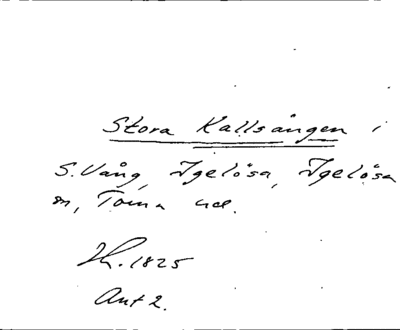 Stora Kallsången i
S. Vång, Igelösa, Igelösa
sn, Torna hd.
Lh. 1825
Ant 2.